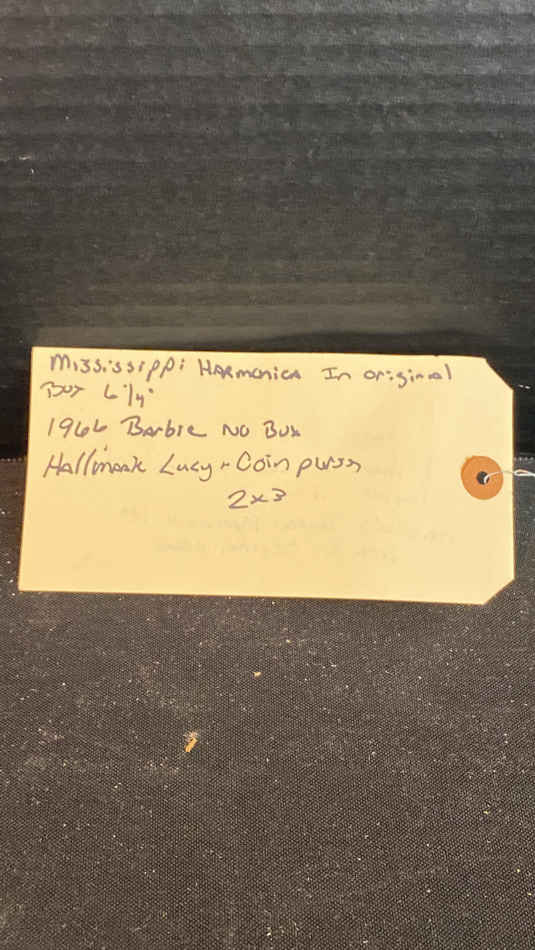 Mississippi HARmonica In original
Box 6 1/4"
1966 Barbie No Box
Hallmark Lucy - Coin purse
2x3